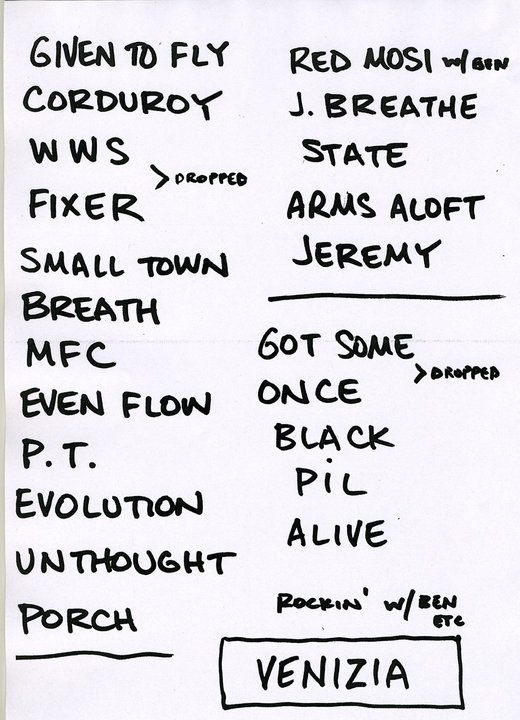 GIVEN TO FLY
CORDUROY
WWS
> DROPPED
FIXER
SMALL TOWN
BREATH
MFC
EVEN FLOW
P.T.
EVOLUTION
UNTHOUGHT
PORCH
RED MOSI w/ BEN
J. BREATHE
STATE
ARMS ALOFT
JEREMY
GOT SOME
> DROPPED
ONCE
BLACK
PiL
ALIVE
ROCKIN' W/ BEN
ETC
VENIZIA